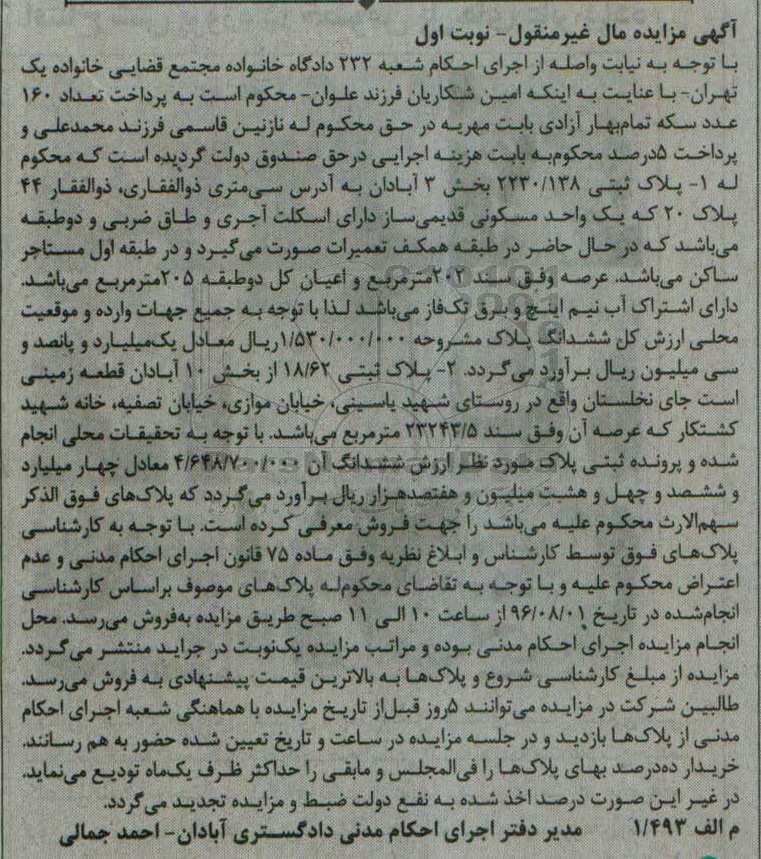 آگهی مزایده مال غیرمنقول- نوبت اول
با توجه به نیابت واصله از اجرای احکام شعبه ۲۳۲ دادگاه خانواده مجتمع قضایی خانواده یک
تهران- با عنایت به اینکه امین شکاریان فرزند علوان- محکوم است به پرداخت تعداد ۱۶۰
عدد سکه تمام‌بهار آزادی بابت مهریه در حق محکوم له نازنین قاسمی فرزند محمدعلی و
پرداخت ۵درصد محکوم‌به بابت هزینه اجرایی درحق صندوق دولت گردیده است که محکوم
له ۱- پلاک ثبتی ۲۲۳۰/۱۳۸ بخش ۳ آبادان به آدرس سی‌متری ذوالفقاری، ذوالفقار ۴۴
پلاک ۲۰ که یک واحد مسکونی قدیمی‌ساز دارای اسکلت آجری و طاق ضربی و دوطبقه
می‌باشد که در حال حاضر در طبقه همکف تعمیرات صورت می‌گیرد و در طبقه اول مستاجر
ساکن می‌باشد. عرصه وفق سند ۲۰۲مترمربع و اعیان کل دوطبقه ۲۰۵مترمربع می‌باشد.
دارای اشتراک آب نیم اینچ و برق تک‌فاز می‌باشد لذا با توجه به جمیع جهات وارده و موقعیت
محلی ارزش کل ششدانگ پلاک مشروحه ۱/۵۳۰/۰۰۰/۰۰۰ریال معادل یک‌میلیارد و پانصد و
سی میلیون ریال برآورد می‌گردد. ۲- پلاک ثبتی ۱۸/۶۲ از بخش ۱۰ آبادان قطعه زمینی
است جای نخلستان واقع در روستای شهید یاسینی، خیابان موازی، خیابان تصفیه، خانه شهید
کشتکار که عرصه آن وفق سند ۲۳۲۴۳/۵ مترمربع می‌باشد. با توجه به تحقیقات محلی انجام
شده و پرونده ثبتی پلاک مورد نظر ارزش ششدانگ آن ۴/۶۴۸/۷۰۰/۰۰۰ معادل چهار میلیارد
و ششصد و چهل و هشت میلیون و هفتصدهزار ریال برآورد می‌گردد که پلاک‌های فوق الذکر
سهم‌الارث محکوم علیه می‌باشد را جهت فروش معرفی کرده است. با توجه به کارشناسی
پلاک‌های فوق توسط کارشناس و ابلاغ نظریه وفق ماده ۷۵ قانون اجرای احکام مدنی و عدم
اعتراض محکوم علیه و با توجه به تقاضای محکوم‌له پلاک‌های موصوف براساس کارشناسی
انجام‌شده در تاریخ ۹۶/۰۸/۰۱ از ساعت ۱۰ الی ۱۱ صبح طریق مزایده به‌فروش می‌رسد. محل
انجام مزایده اجرای احکام مدنی بوده و مراتب مزایده یک‌نوبت در جراید منتشر می‌گردد.
مزایده از مبلغ کارشناسی شروع و پلاک‌ها به بالاترین قیمت پیشنهادی به فروش می‌رسد.
طالبین شرکت در مزایده می‌توانند ۵روز قبل‌از تاریخ مزایده با هماهنگی شعبه اجرای احکام
مدنی از پلاک‌ها بازدید و در جلسه مزایده در ساعت و تاریخ تعیین شده حضور به هم رسانند.
خریدار ده‌درصد بهای پلاک‌ها را فی‌المجلس و مابقی را حداکثر ظرف یک‌ماه تودیع می‌نماید.
در غیر این صورت درصد اخذ شده به نفع دولت ضبط و مزایده تجدید می‌گردد.
م الف ۱/۴۹۳ مدیر دفتر اجرای احکام مدنی دادگستری آبادان- احمد جمالی